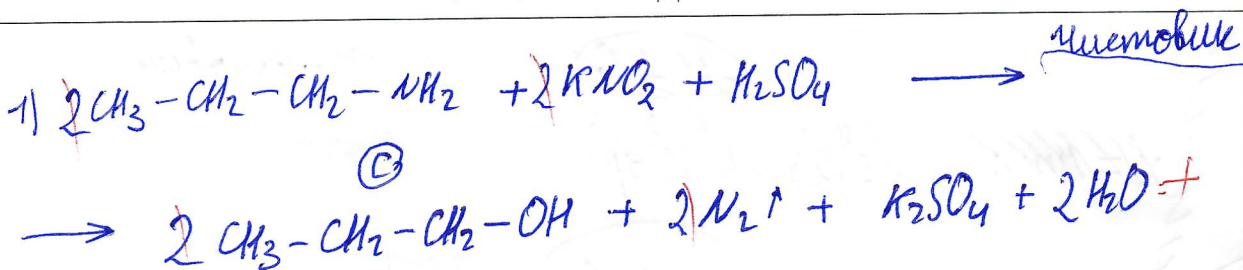 чистовик
1) 2CH₃-CH₂-CH₂-NH₂ + 2KNO₂ + H₂SO₄ ⟶
C
⟶ 2CH₃-CH₂-CH₂-OH + 2N₂↑ + K₂SO₄ + 2H₂O +